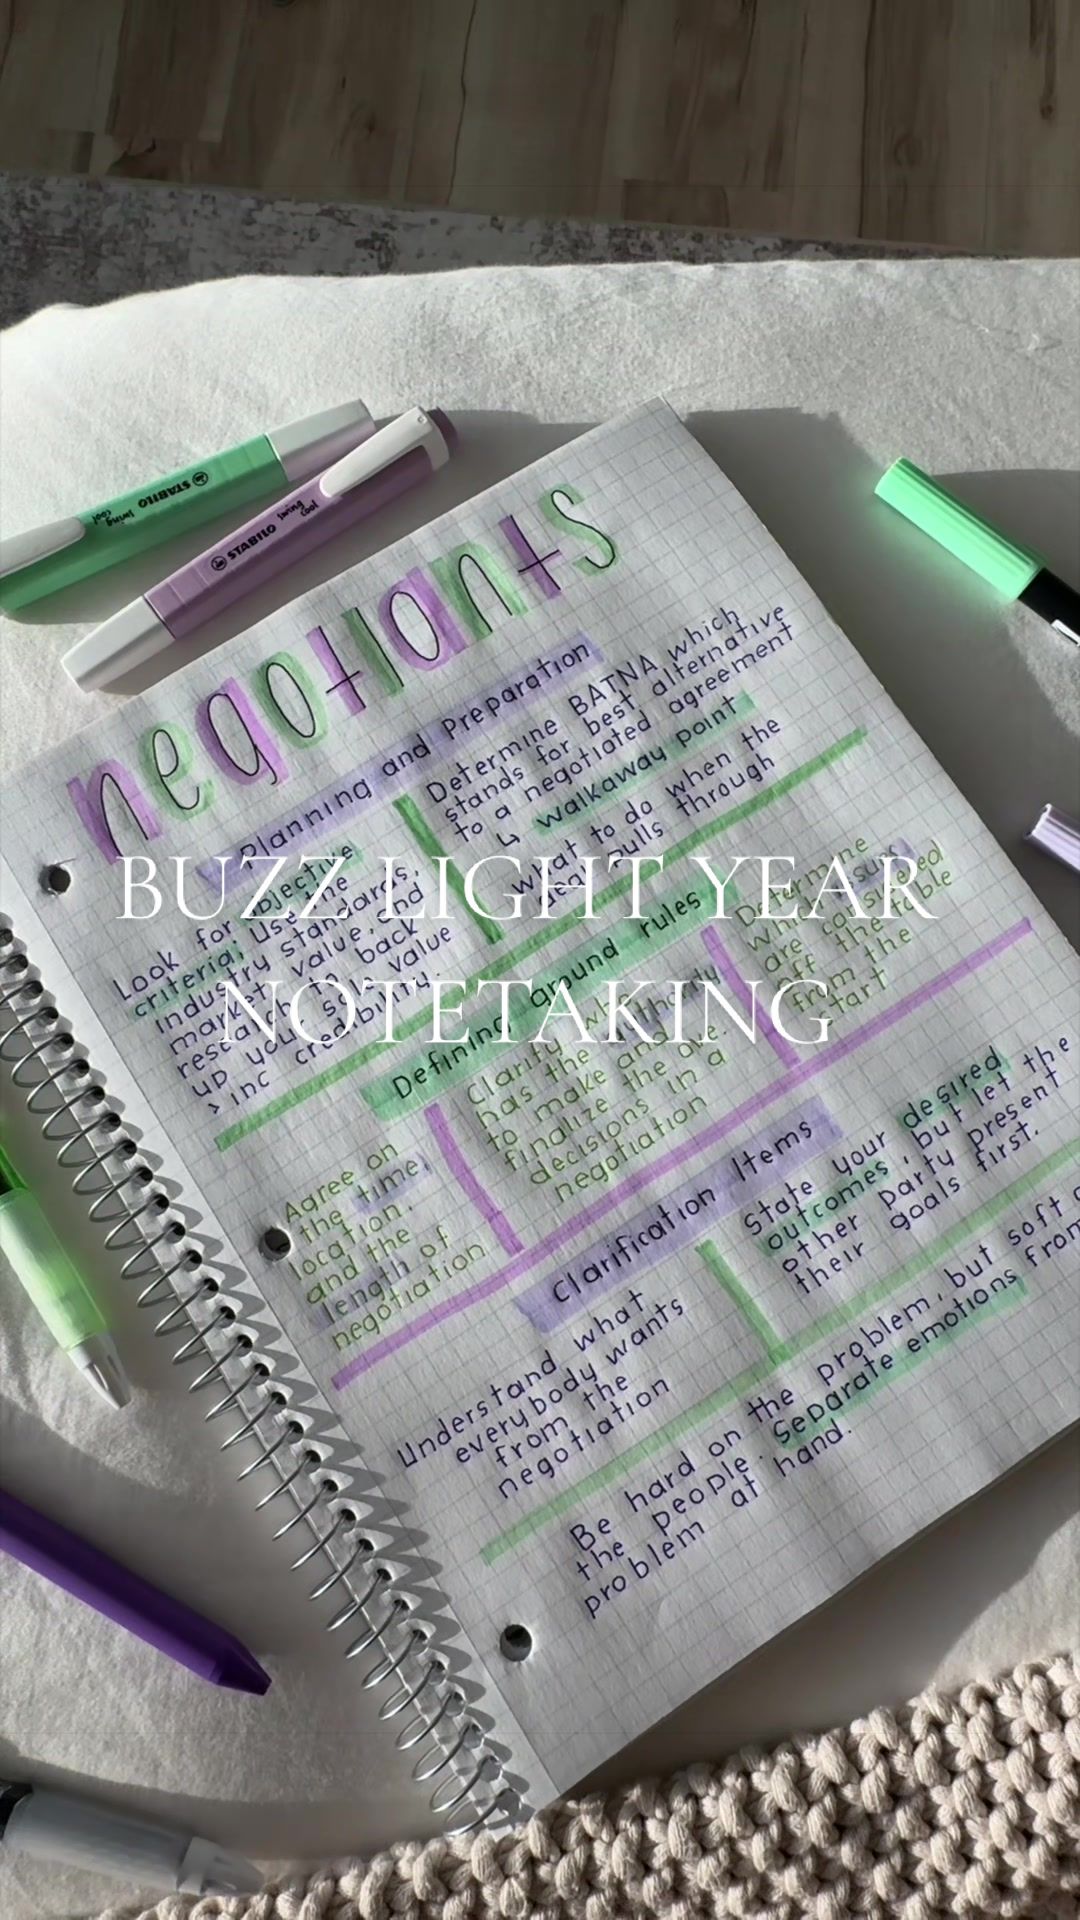 STABILO swing cool
STABILO swing cool
negotiants
Planning and Preparation
Look for objective
criteria; Use the
industry standards,
market value, and
research to back
up your sale value
> inc credibility.
Determine BATNA which
stands for best alternative
to a negotiated agreement
↳ walkaway point
what to do when the
deal pulls through
BUZZ LIGHT YEAR
NOTETAKING
Defining ground rules
Agree on
the time,
location,
and the
length of
negotiation
Clarify who
has the authority
to make and
finalize the
decisions in a
negotiation
Determine
which
are considered
off the table
from the
start
Clarification Items
Understand what
everybody wants
from the
negotiation
State your desired
outcomes, but let the
other party present
their goals first.
Be hard on the problem, but soft
the people. Separate emotions from
problem at hand.